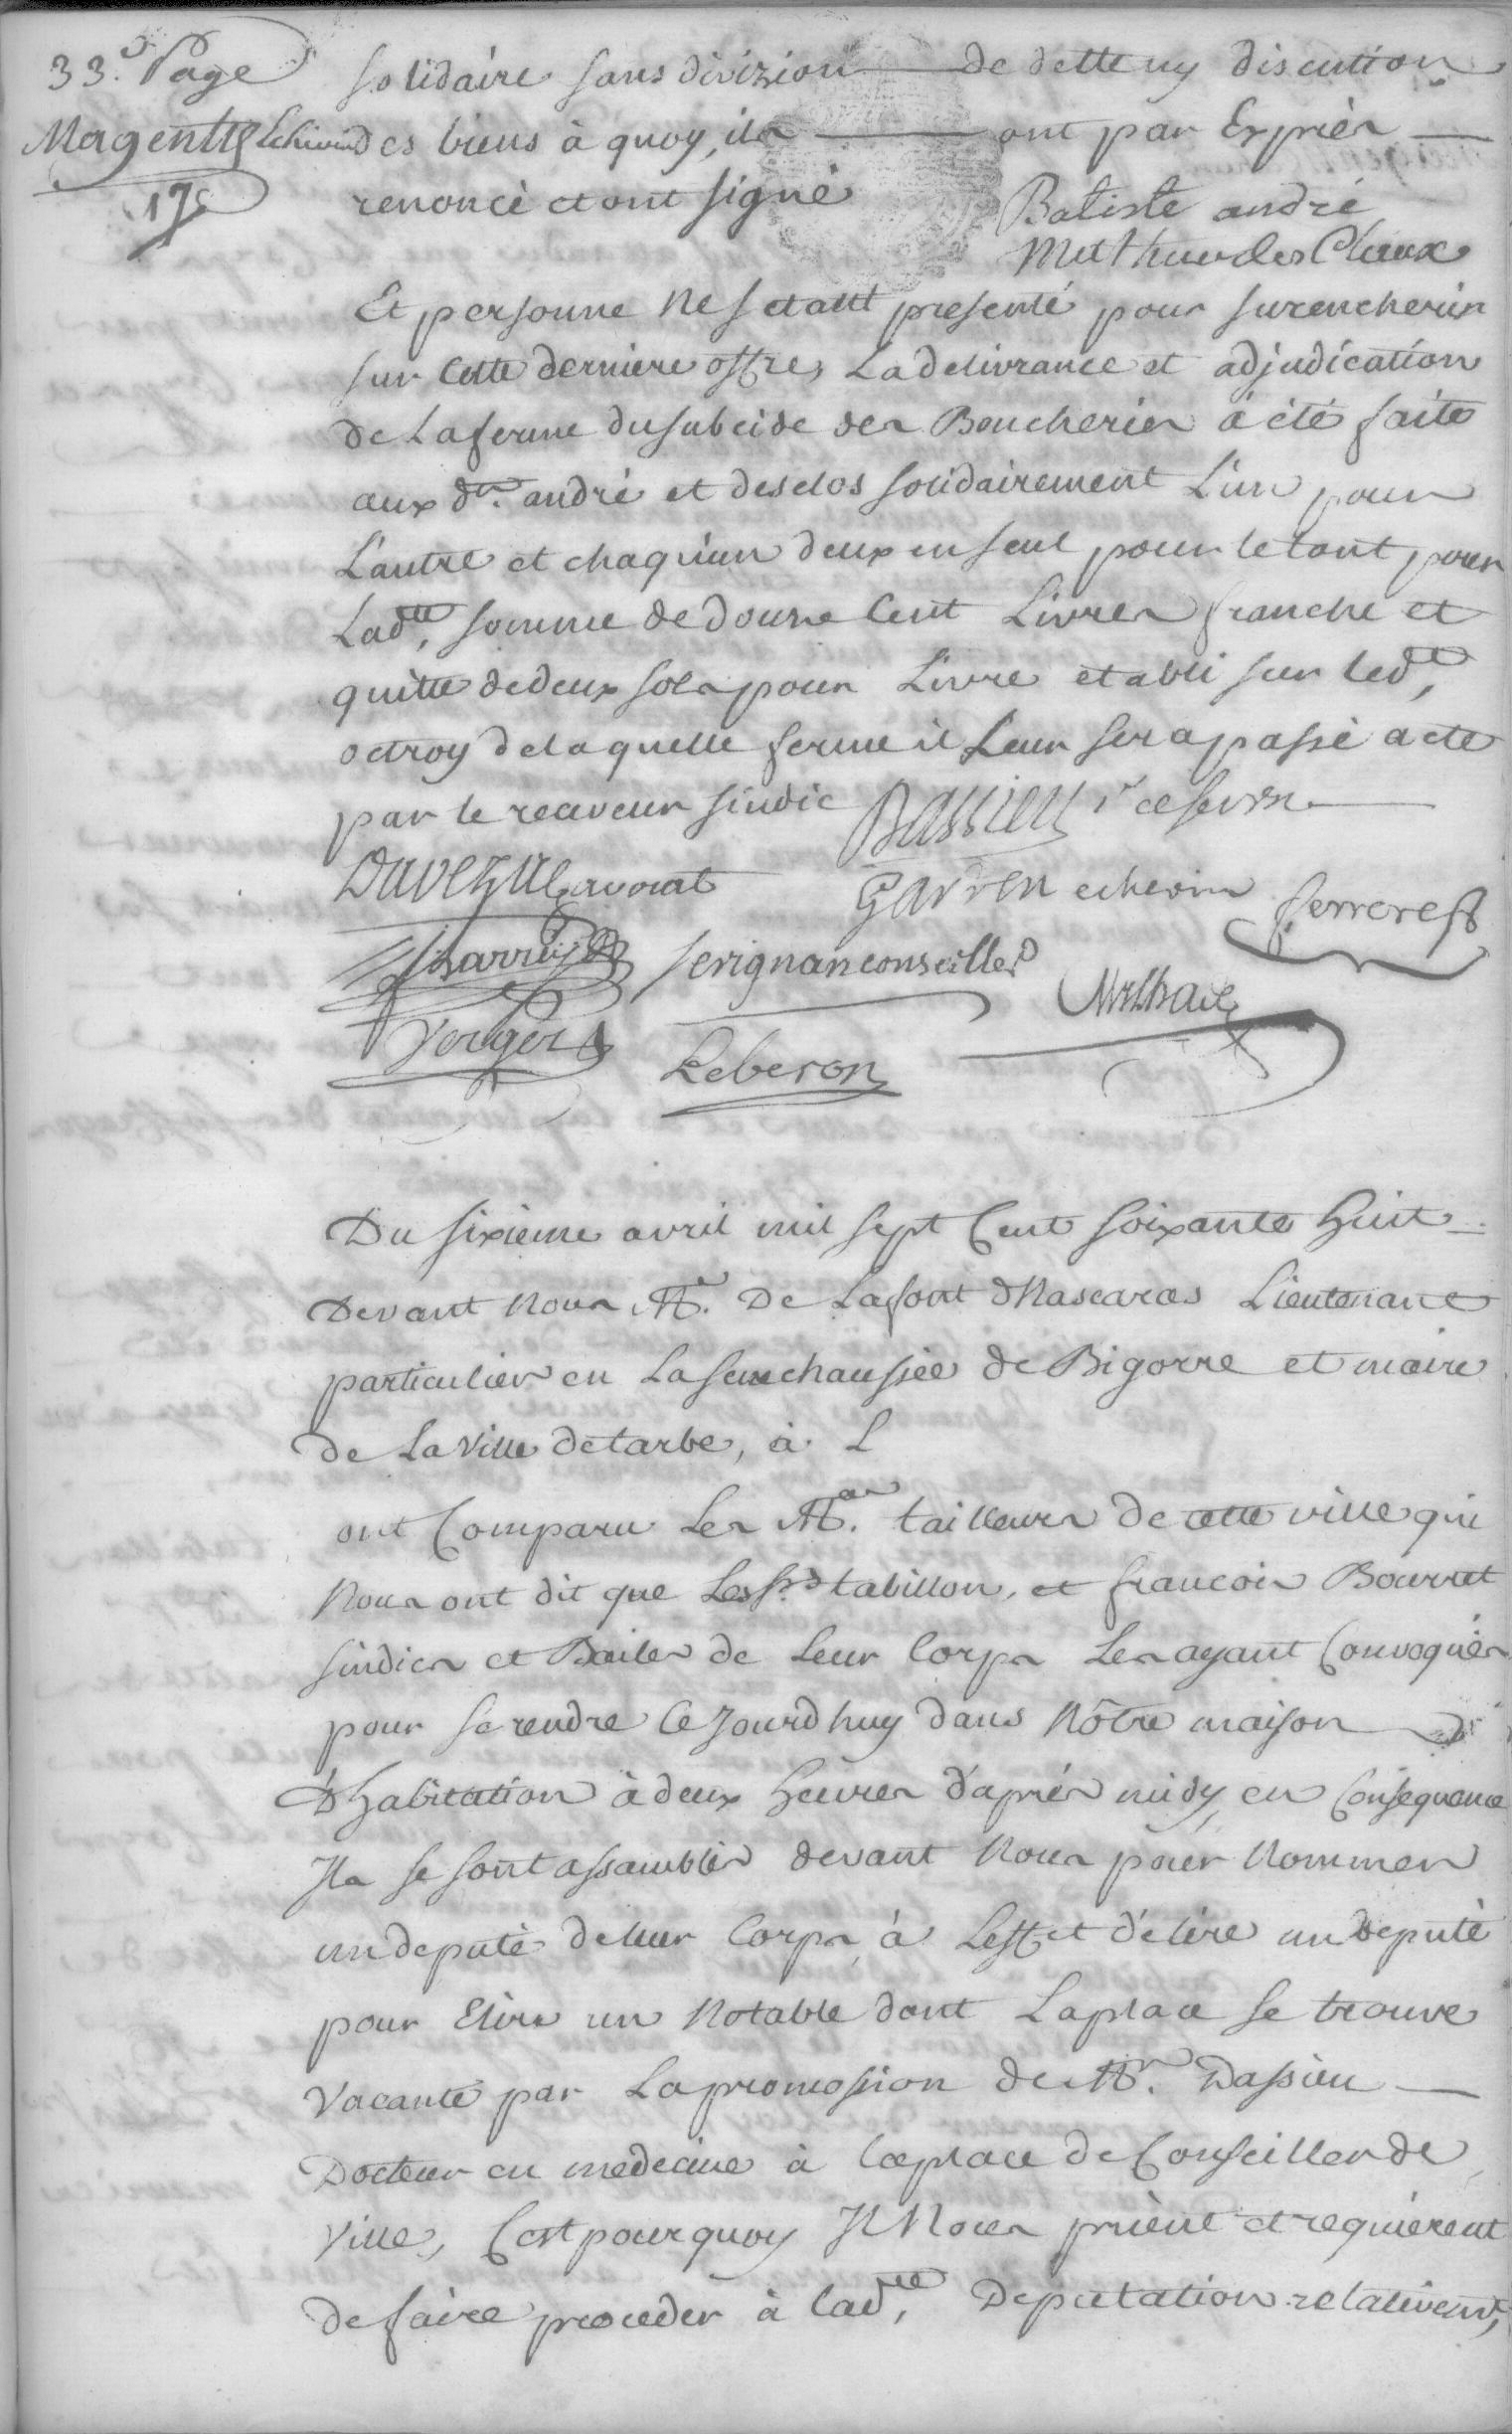 33.e Page
Magentie Echevin
17
solidaire sans divizion de dette ny discution
des biens à quoy, ils ont par Exprès
renoncè et ont signè
Batiste andré
Methuerdes Claux
Et personne ne setant presenté pour surencherir
sur cette derniere offre, La delivrance et adjudication
de La ferme du subcide des Boucheries à été faite
aux d.rs andrè et desclos solidairement L'un pour
L'autre et chaqu'un deux en seul pour le tout pour
Lad.te somme de douze Cent Livres franche et
quitte de deux sols pour Livre etabli sur led.t
octroy de laquelle ferme il Leur sera passè acte
par le receveur sindic Dassieu
Duvezui avocat
garren echevin
ferrere
Barruye
serignan conseiller
Verger
Leberon
Du sixieme avril mil sept Cent soixante huit
Devant nous M.e De Lafont dMascaras Lieutenant
particulier en La senechaussée de Bigorre et maire
de La ville de tarbe, à L
ont Comparu Les M.es tailleurs de cette ville qui
nous ont dit que Les s.rs tabillon, et francois Bourret
sindics et Bailes de leur Corps Les ayant Convoquès
pour se rendre Cejourdhuy dans Nôtre maison
D'habitation à deux heures d'après midy, en Consequence
Ils se sont assamblés devant nous pour nommer
un deputè de leur Corps à Leffet d'élire un deputè
pour Elire un Notable dont La place se trouve
vacante par La promossion de M.r Dassieu
Docteur en medecine à la place de Conseiller de
ville, C'est pourquoy Il Nous prient et requièrent
de faire proceder à lad.te Deputation relativem.t